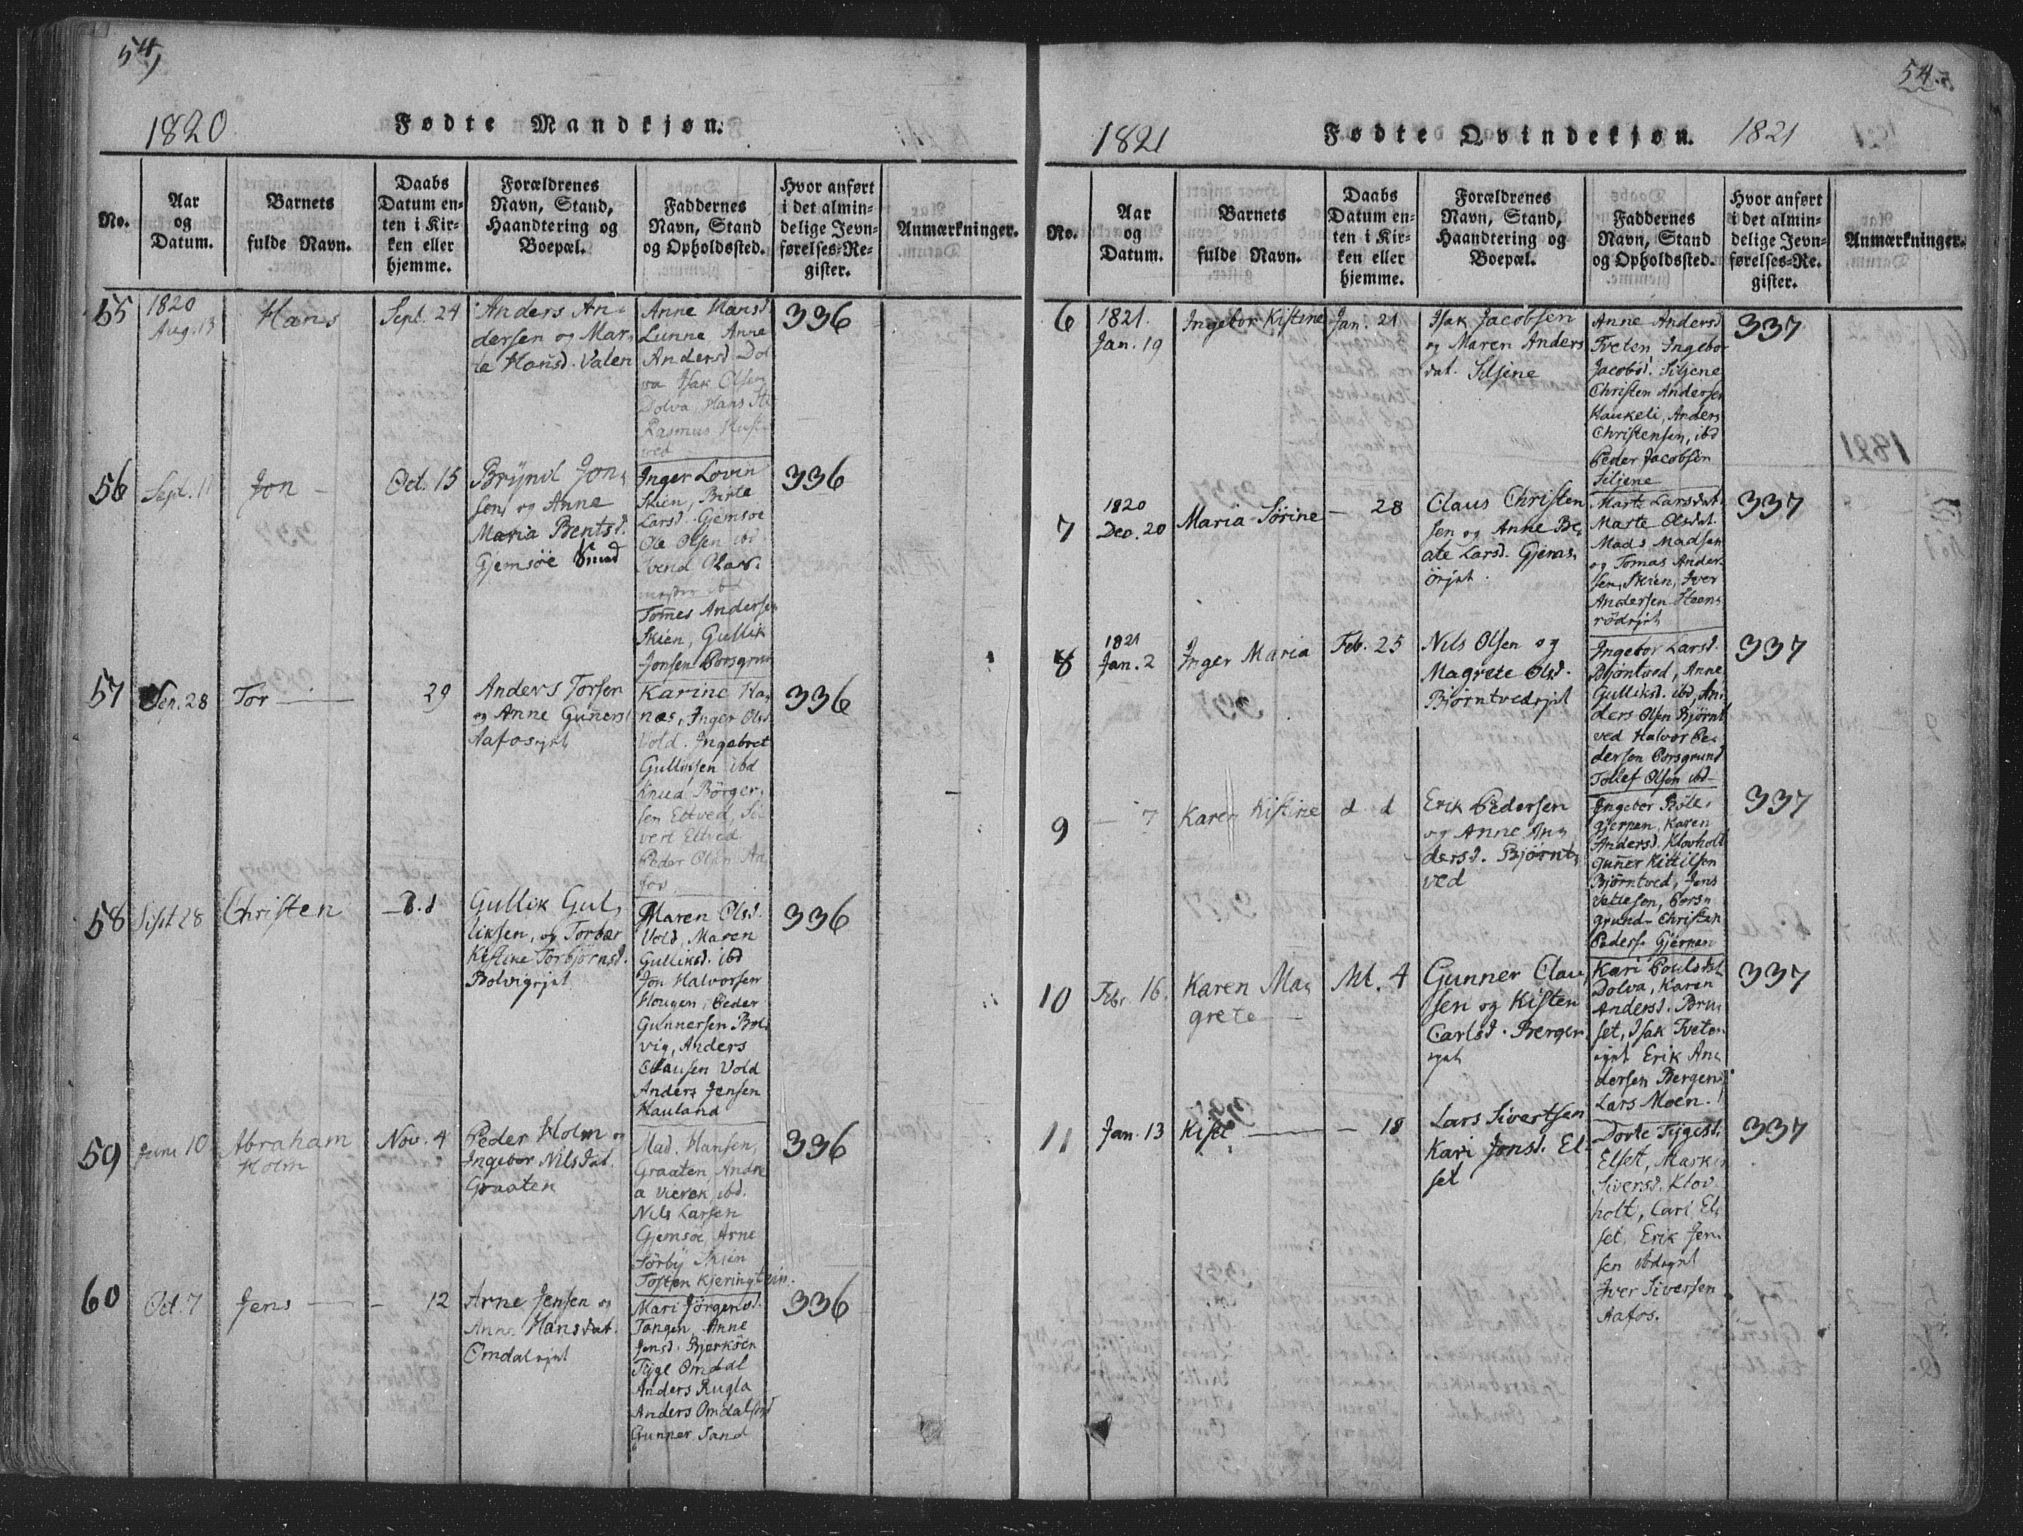 54,
1820
Fødte Mandkjøn.
No.
Aar
og
Datum.
Barnets
fulde Navn.
Daabs
Datum en-
ten i Kir-
ken eller
hjemme.
Forældrenes
Navn, Stand,
Haandtering og
Boepæl.
Faddernes
Navn, Stand
og Opholdsted.
Hvor anført
i det almin-
delige Jevn-
førelses-Re-
gister.
Anmærkninger.
55
1820
Aug. 13
Hans
Sept. 24
Anders An-
dersen og Mar-
te Hansd. Valen
Anne Hansd.
Lunne Anne
Andersd. Dol
va Isak Olsen
Dolva, Hans
Rasmus
ved
336
56
Sept. 11
Jon
Oct. 15
Brynil Jon,
sen og Anne
Maria Bentsd.
Gjemsöe Smed
Inger Lovin
Skien, Birte
Larsd. Gjemsoe
Ole Olsen ibd
Svend Olav.
ibd
Tomes Andersen
Skien, Gullik
Jonsen Porsgrun
336
57
Sep. 28
Tor
29
Anders Torsen
og Anne Guners
Aafosejet
Karine Ha,
næs, Inger Olsd
Vold. Ingebret
Gulliksen ibd
Knud Börger,
sen Eltved, Si
vert Eltved
Peder Olsen Aa,
fos
336
58
Sept 28
Christen
d. d
Gullik Gul,
liksen, og Torbær
Kistine Torbjörnsd.
Bolvigejet
Maren Olsd.
Vold, Maren
Gulliksd. ibd
Jon Halvorsen
Hougen, Peder
Gunnersen Bol
vig, Anders
Clausen Vold
Anders Jensen
Hauland
336
59
Juni 10
Abraham
Holm
Nov. 4
Peder Holm og
Ingebor Nilsdat.
Graaten
Mad. Hansen,
Graaten, Andre
a Vieren, ibd.
Nils Larsen
Gjemsöe, Arne
Sörby Skien
Tosten Kjeringtein.
336
60
Oct. 7
Jens
12
Arne Jensen og
Anne Hansdat.
Omdalejet
Mari Jörgensd.
Tangen, Anne
Jensd. Bjerköen
Tygl Omdal
Anders Rugla
Anders Omdalsejet
Gunner Sand
336
54.
1821
Fødte Qvindekjøn.
1821
No.
Aar
og
Datum.
Barnets
fulde Navn.
Daabs
Datum en-
ten i Kir-
ken eller
hjemme.
Forældrenes
Navn, Stand,
Haandtering og
Boepæl.
Faddernes
Navn, Stand
og Opholdsted.
Hvor anført
i det almin-
delige Jevn-
førelses-Re-
gister.
Anmærkninger.
6
1821.
Jan. 19
Ingebor Kistine
Jan. 21
Isak Jacobsen
og Maren Anders
dat. Siljene
Anne Andersd
Tveten Ingebor
Jacobsd. Siljene
Christen Andersen
Haukeli, Anders
Christensen, ibd
Peder Jacobsen
Siljene
337
7
1820
Dec. 20
Maria Sørine
28
Claus Christen
sen og Anne Be,
ate Larsd. Gjems,
öejet
Marte Larsdat.
Marte Olsdat.
Mads Madsen
og Tomas Ander
sen, Skien, Iver
Andersen Steens
rödejet
337
8
1821
Jan. 2
Inger Maria
Feb. 25
Nils Olsen og
Magrete Olsd.
Björntvedejet
Ingebor Larsd.
Björntved, Anne
Gulliksd. ibd, An,
ders Olsen Björnt
ved Halvor Pe,
dersen Porsgrund
Tollef Olsen ibd
337
9
7
Karen Kistine
d d
Erik Pedersen
og Anne An,
dersd. Björnt,
ved
Ingebor
Gjerpen, Karen
Andersd. Klovholt
Guner Kittilsen
Björntved, Jens
Pors,
grund Christen
Peders. Gjerpen
337
10
Febr. 16.
Karen Ma,
grete
M. 4
Gunner Clau,
sen og Kisten
Carlsd. Berger,
ejet
Kari Poulsdat
Dolva, Karen
Andersd. Bru,
set, Isak Tveten
ejet Erik An,
dersen Bergen
Lars Moen.
337
11
Jan. 13
Kisti
18
Lars Sivertsen
Kari Jonsd. El-
set
Dorte Tygesd.
Elset, Maria
Siversd. Klov
holt, Carl El,
set, Erik Jen
sen
Iver Siversen
Aafos.
337